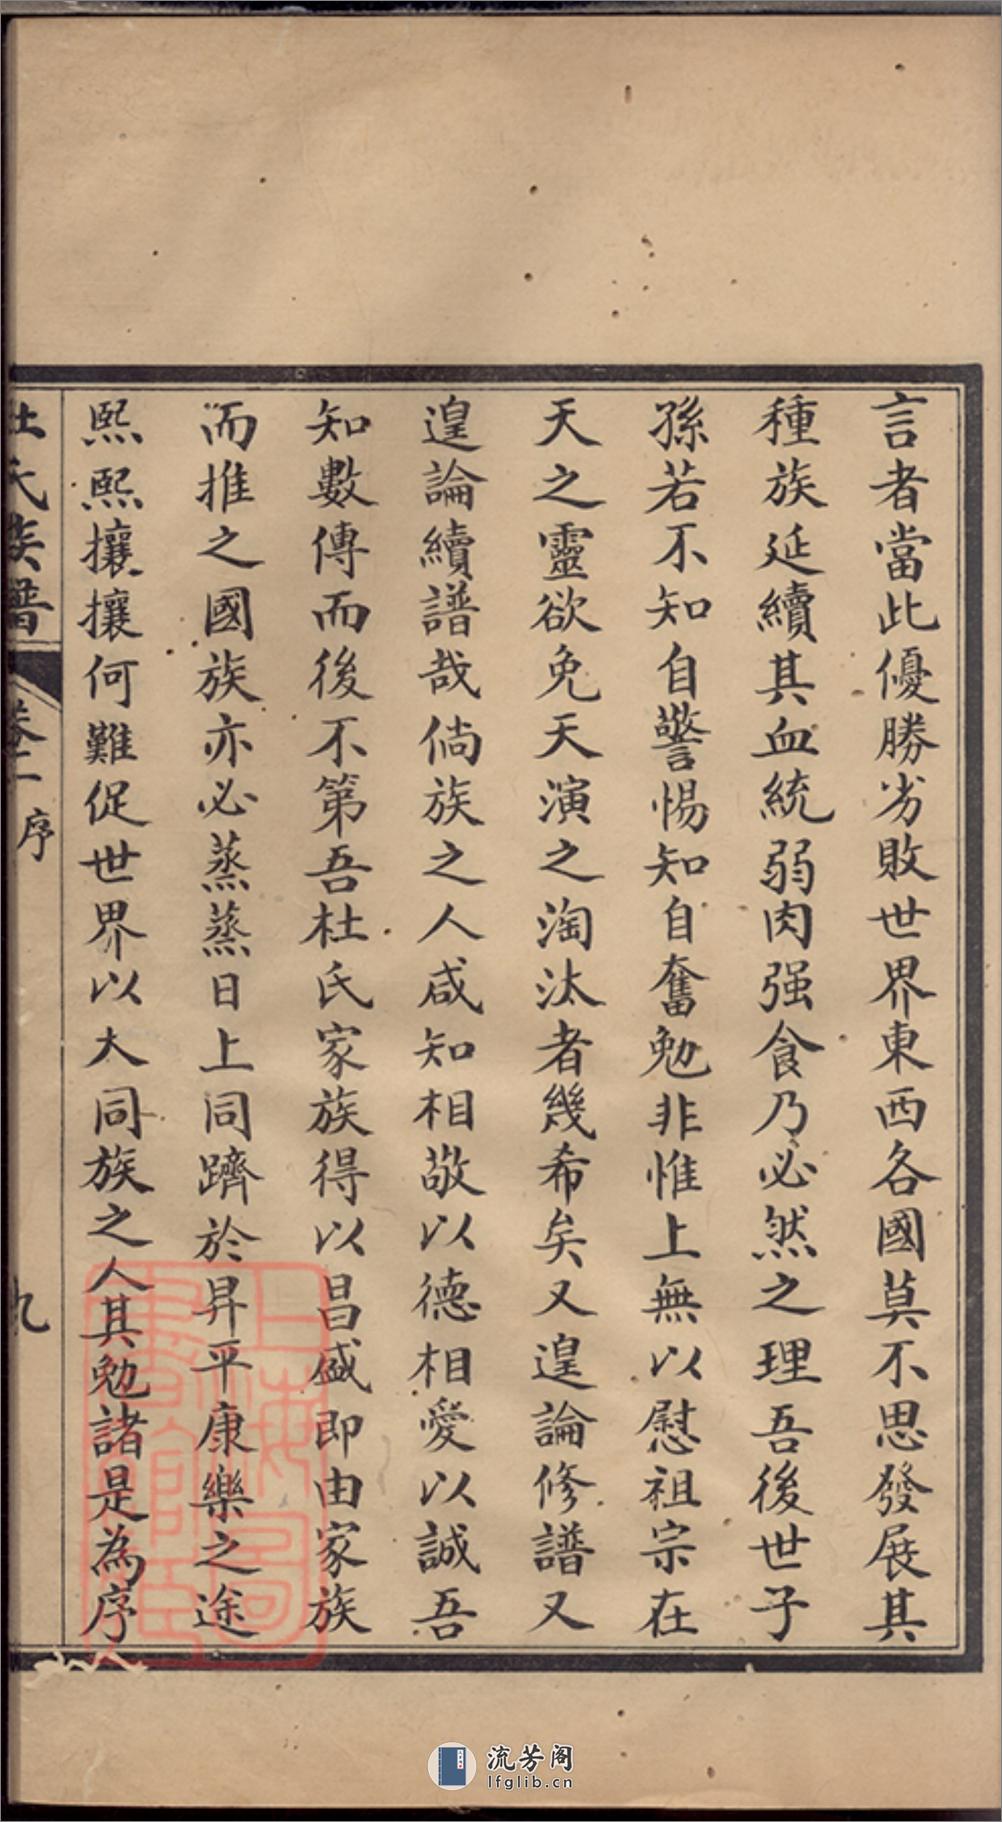 言者當此優勝劣敗世界東西各國莫不思發展其
種族延續其血統弱肉强食乃必然之理吾後世子
孫若不知自警惕知自奮勉非惟上無以慰祖宗在
天之靈欲免天演之淘汰者幾希矣又遑論修譜又
遑論續譜哉倘族之人咸知相敬以德相愛以誠吾
知數傳而後不第吾杜氏家族得以昌盛即由家族
而推之國族亦必蒸蒸日上同躋於昇平康樂之途
熙熙攘攘何難促世界以大同族之人其勉諸是為序
杜氏族譜
卷一 序
九
上海圖書館藏
流芳阁
lfglib.cn